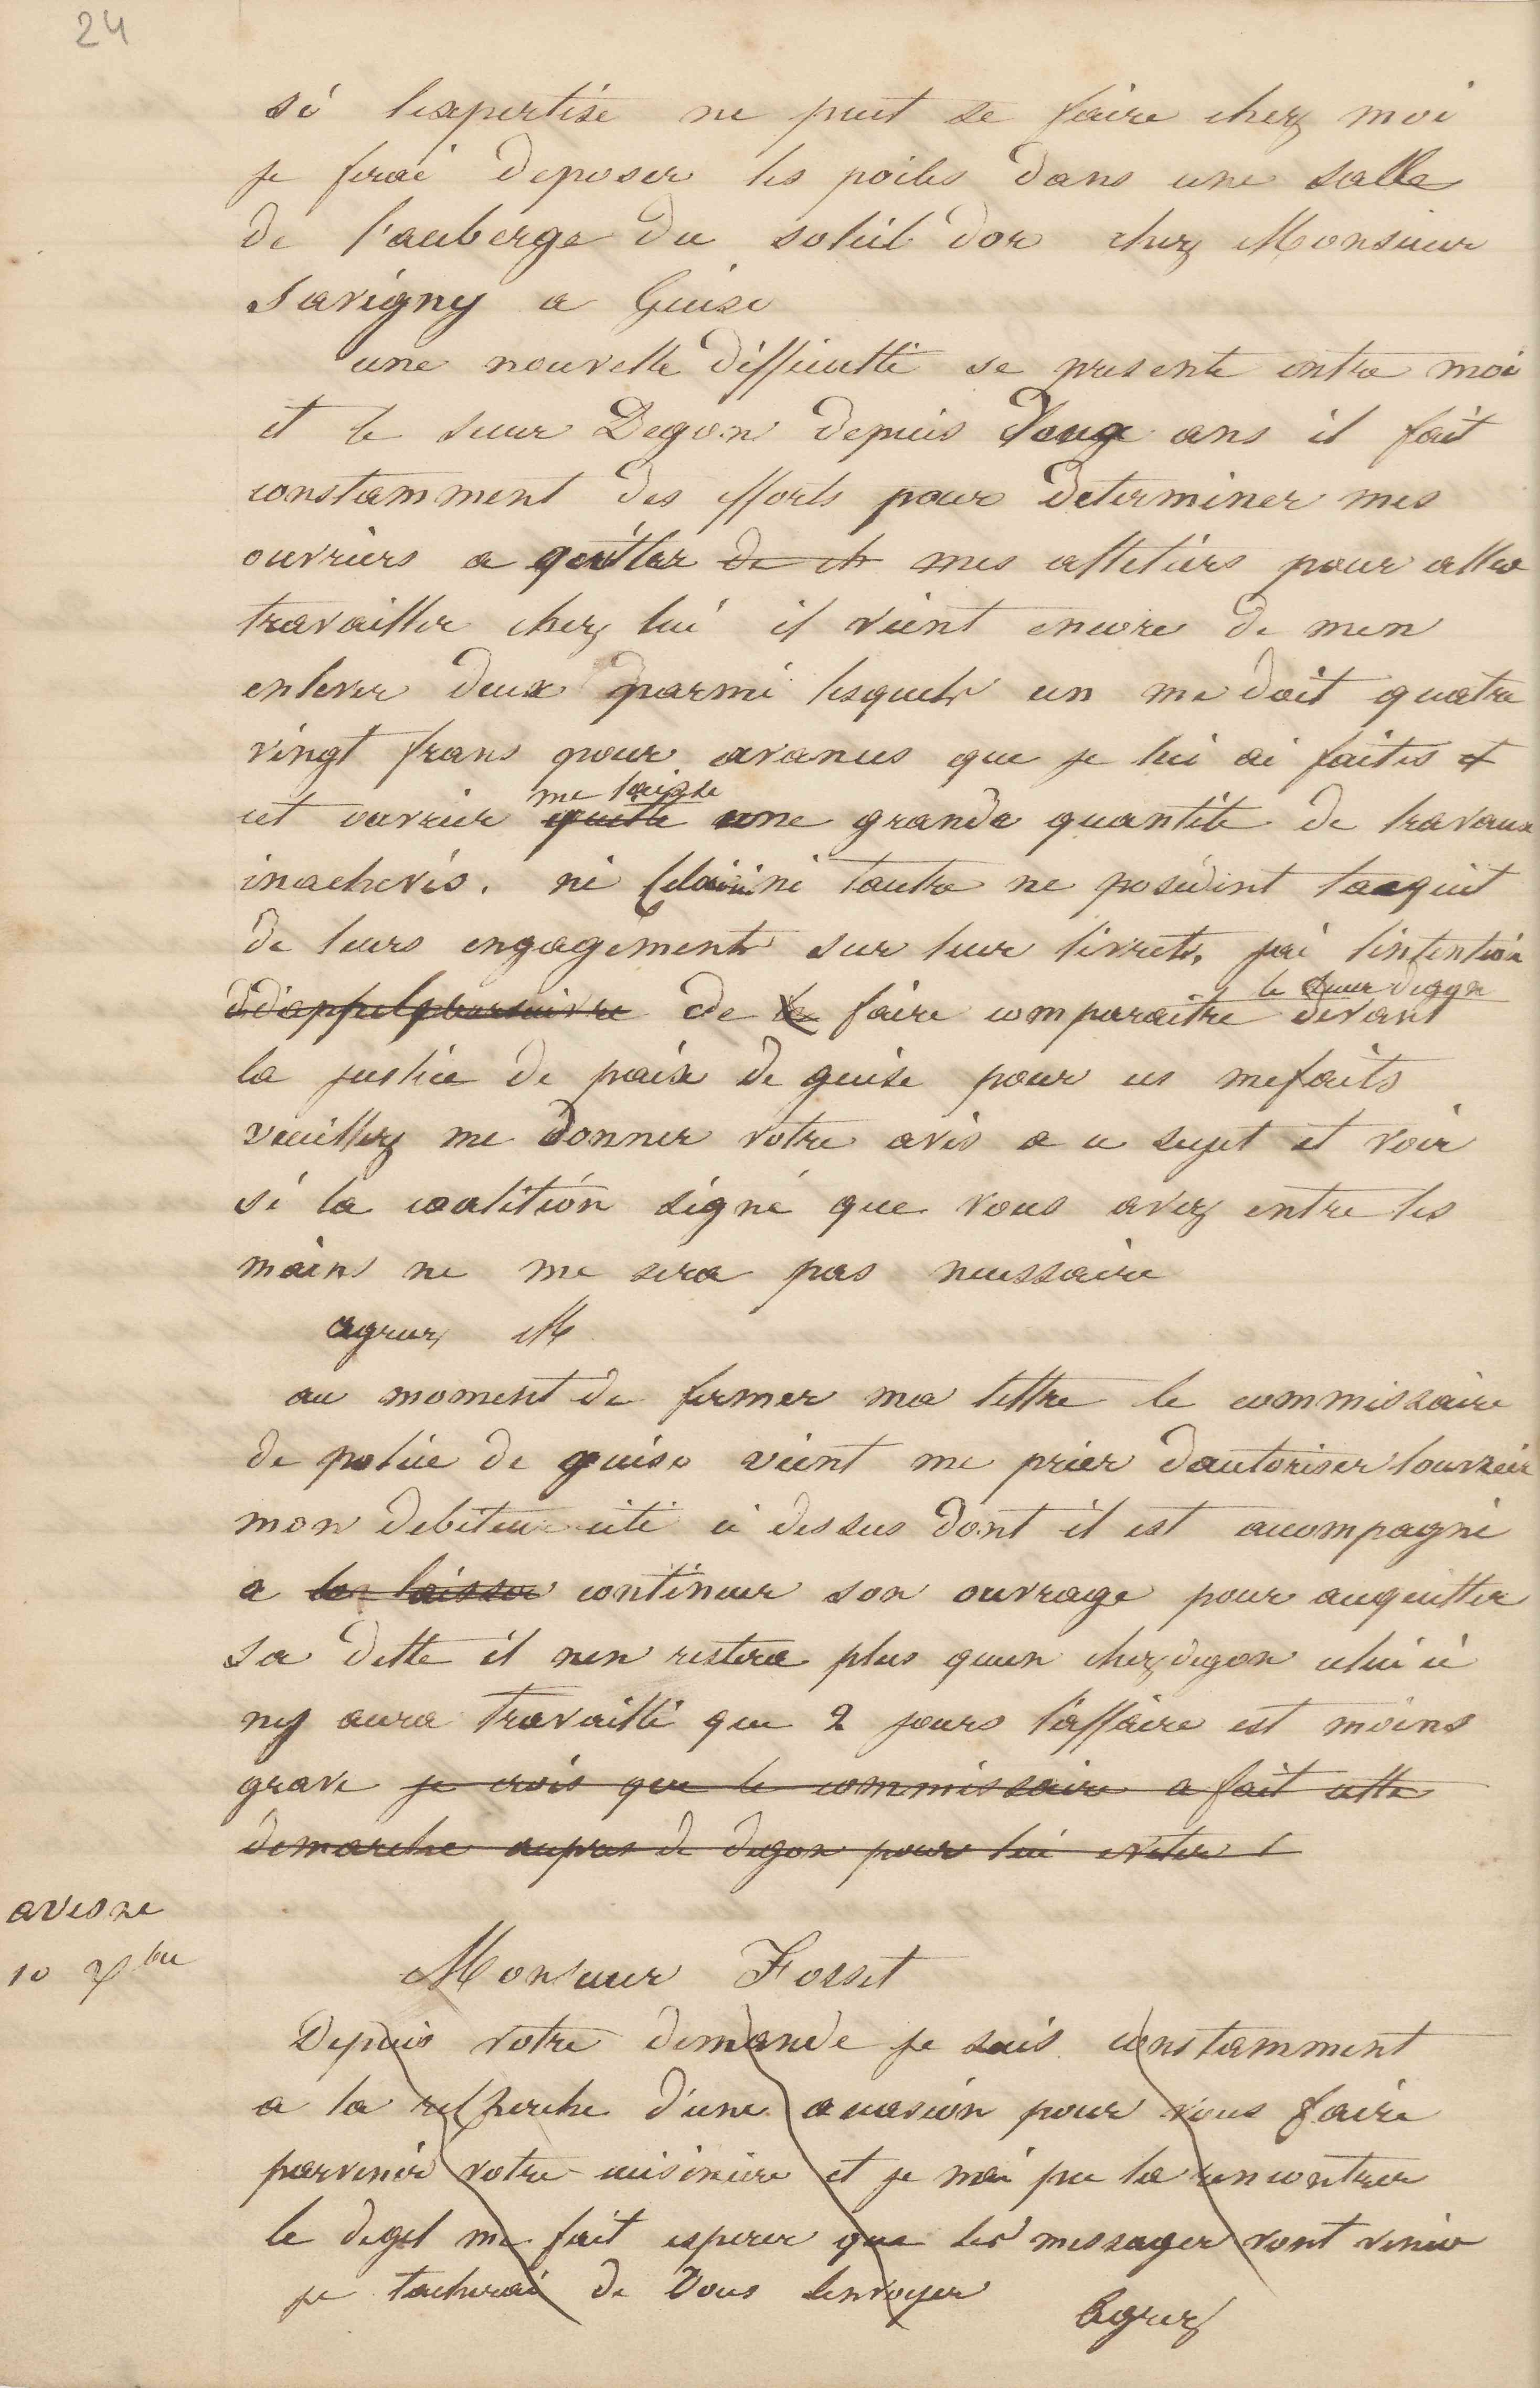 24
si lexpertise ne peut se faire chez moi
je ferai deposer les poiles dans une salle
de l'auberge du soleil dor chez Monsieur
Savigny a Guise
une nouvelle difficultté se presente entre moi
et le sieur Degon depuis deux ans il fait
constamment des efforts pour determiner mes
ouvriers a quitter de ch mes atteliers pour aller
travailler chez lui il vient encore de men
enlever deux parmi lesquels un me doit quatre
vingt frans pour avances que je lui ai faites et
me laisse
cet ouvrier quitte une grande quantité de travaux
inachevés. ni ni lautre ne posèdent lacquit
de leurs engagements sur leur livrets, jai lintention
le sieur degon
de faire comparaitre devant
la justice de paix de guise pour ces mefaits
veuillez me donner votre avis a ce sujet et voir
si la coalition signé que vous avez entre les
mains ne me sera pas necessaire
agreez M
au moment de fermer ma lettre le commissaire
de police de guise vient me prier dautoriser
mon debiteur cité ci dessus dont il est acompagné
a le laisser continuer son ouvrage pour acquitter
sa dette il nen restera plus quun chez degon celui ci
ny aura travaillé que 2 jours l'affaire est moins
grave je crois que le commissaire a fait cette
demarche aupres de degon pour lui eviter l
avesne
10 xbre
Monsieur Fosset
Depuis votre demande je suis constamment
a la recherche d'une occasion pour vous faire
parvenir votre cuisiniere et je nai pu la rencontrer
le degel me fait esperer que les messager vont venir
je tacherai de vous lenvoyer
Agreez